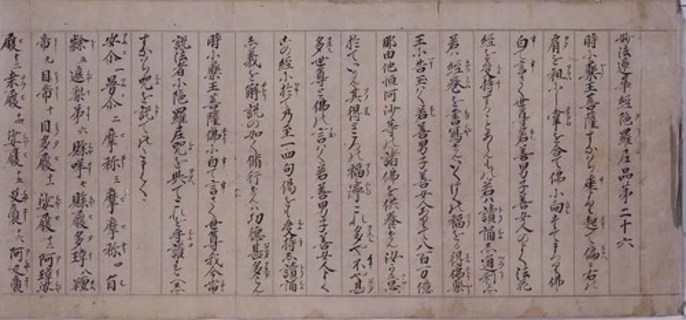 妙法蓮華經陀羅尼品第二十六
時に藥王菩薩すなはち座より起て偏に右の
肩を袒にし掌を合て佛に向たてまつりて佛
白て言さく世尊若善男子善女人のよく法花
經を受持することあらんもの若は讀誦し通利し
若は經卷を書寫せんいくばくの福を得佛藥
王に告玉はく若善男子善女人ありて八百万億
那由他恒河沙等の諸佛を供養せん汝が意
於ていかん其得ところの福寧これ多や不や甚
多世尊と佛の言はく若善男子善女人よく
この經に於て乃至一四句偈をも受持し讀誦
し義を解説の如く修行せん功德甚多からん
時に藥王菩薩佛に白て言さく世尊我今當
説法者に陀羅尼咒を與てこれを守護す
すなはち咒を説てのたまはく
安尒一曼尒二摩祢三摩摩祢四旨
隸五遮梨第六賖咩七賖履多瑋八羶
帝九目帝十目多履十一娑履十二阿瑋娑
履十三桑履十四娑履十五叉裔十六阿叉裔